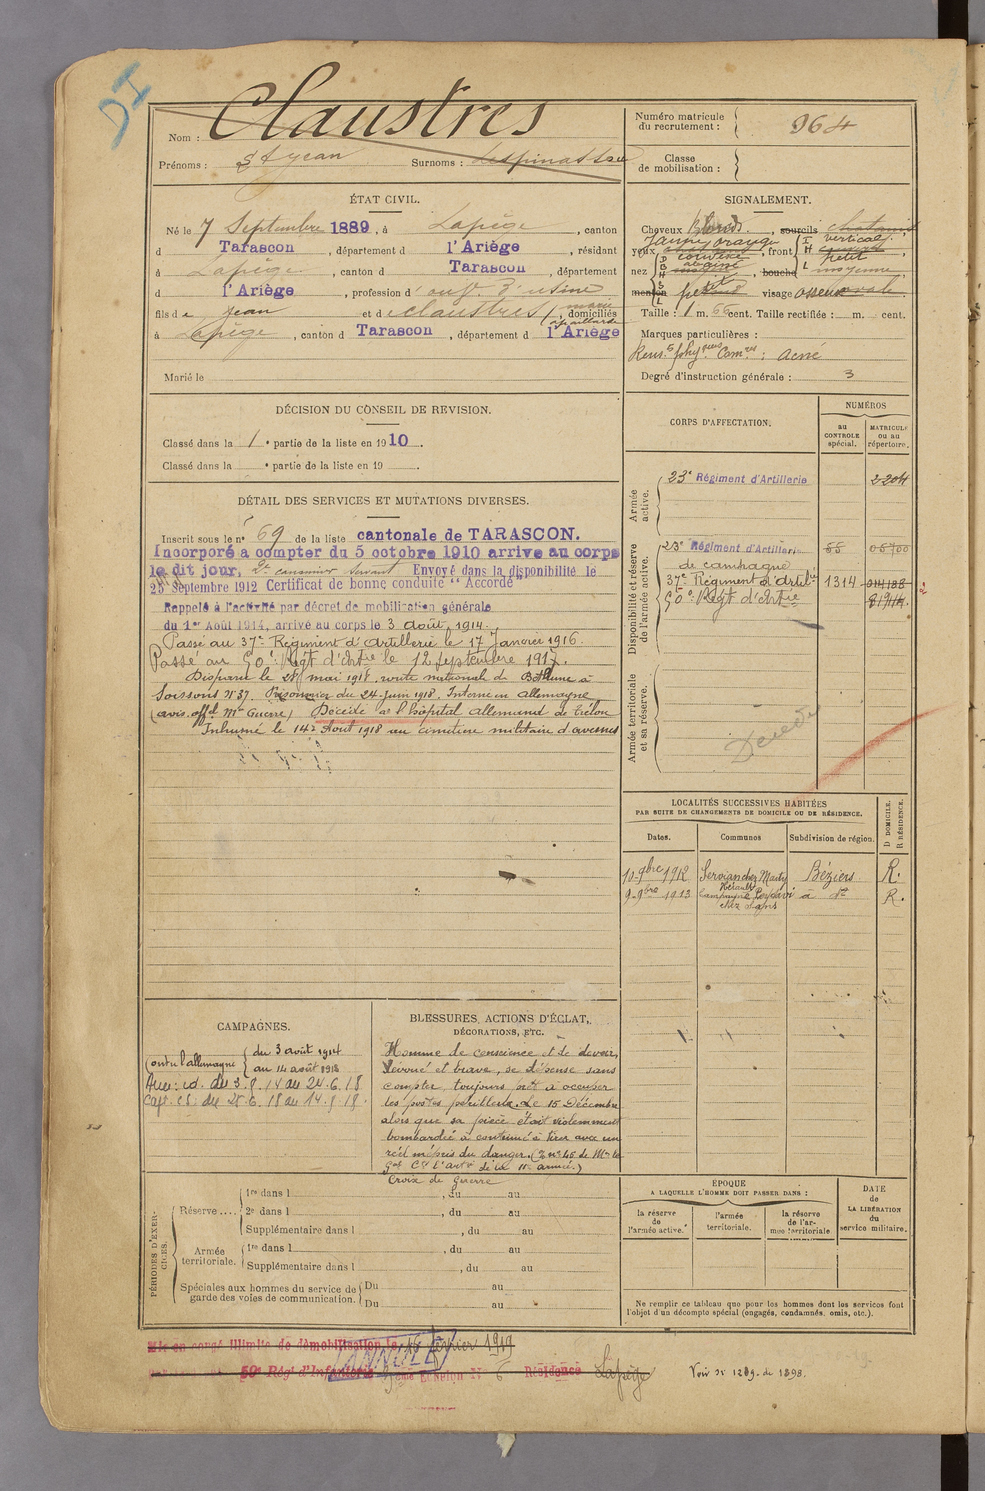 DI
Nom : Claustres
Prénoms : St Jean Surnoms :
Numéro matricule du recrutement : 964
Classe de mobilisation :
ÉTAT CIVIL.
Né le 7 Septembre 1889, à Lapège, canton
d Tarascon, département d l'Ariège, résidant
à Lapège, canton d Tarascon, département
d l'Ariège, profession d' ouv. d'usine
fils de Jean et de Claustres marie, domiciliés
à Lapège, canton d Tarascon, département d l'Ariège
Marié le
SIGNALEMENT.
Cheveux blonds, sourcils chatains
yeux jaune orange, front vertical
nez, bouche moyenne
menton, visage osseux ovale
Taille : 1 m. 66 cent. Taille rectifiée : m. cent.
Marques particulières :
Rens.ts phyques Comres : Acné
Degré d'instruction générale : 3
DÉCISION DU CONSEIL DE REVISION.
Classé dans la 1e partie de la liste en 1910.
Classé dans la e partie de la liste en 19
DÉTAIL DES SERVICES ET MUTATIONS DIVERSES.
Inscrit sous le n° 69 de la liste cantonale de TARASCON.
Incorporé a compter du 5 octobre 1910 arrive au corps
le dit jour, 2e canonnier servant Envoyé dans la disponibilité le
25 Septembre 1912 Certificat de bonne conduite "Accordé"
Rappelé à l'activité par décret de mobilisation générale
du 1er Août 1914, arrivé au corps le 3 août 1914.
Passé au 37e Régiment d'Artillerie le 17 Janvier 1916.
Passé au 50e Régt d'Artie le 12 septembre 1917.
Disparu le 28 mai 1918, route nationale de Béthune à
Soissons N° 37. Prisonnier du 24 Juin 1918. Interné en Allemagne
(avis. offel Mre Guerre) Décédé à l'hôpital allemand de Trélon
Inhumé le 14 Août 1918 au cimetière militaire d'avesnes
CORPS D'AFFECTATION.
NUMÉROS
au CONTROLE spécial.
MATRICULE ou au répertoire.
Armée active.
23e Régiment d'Artillerie 2204
Disponibilité et réserve de l'armée active.
23e Régiment d'Artillerie
de campagne
37e Régiment d'Artillie 1314
50e Régt d'Artie
Armée territoriale et sa réserve.
Décédé
LOCALITÉS SUCCESSIVES HABITÉES
PAR SUITE DE CHANGEMENTS DE DOMICILE OU DE RÉSIDENCE.
Dates. Communes Subdivision de région. D DOMICILE. R RÉSIDENCE.
10 9bre 1912 Servian chez Marty Béziers R.
Hérault
9 9bre 1913 Campagne à do R.
CAMPAGNES.
Contre l'allemagne du 3 août 1914
au 14 août 1918
Aux: cd. du 3.8.14 au 24.6.18
Capt. cs: du 25.6.18 au 14.8.18.
BLESSURES, ACTIONS D'ÉCLAT,
DÉCORATIONS, ETC.
Homme de conscience et de devoir,
dévoué et brave, se dépense sans
compter, toujours prêt à occuper
les postes périlleux. Le 15 Décembre
alors que sa pièce était violemment
bombardée à continué à tirer avec un
réel mépris du danger. (O n° 46 de Mr le
Gal Ct l'arté de la 11e armée.)
Croix de Guerre
PÉRIODES D'EXERCICES.
Réserve.... 1re dans l , du au
2e dans l , du au
Supplémentaire dans l , du au
Armée territoriale. 1re dans l , du au
Supplémentaire dans l , du au
Spéciales aux hommes du service de garde des voies de communication. Du au
Du au
ÉPOQUE
A LAQUELLE L'HOMME DOIT PASSER DANS :
la réserve de l'armée active.
l'armée territoriale.
la réserve de l'armée territoriale
DATE de LA LIBÉRATION du service militaire.
Ne remplir ce tableau que pour les hommes dont les services font
l'objet d'un décompte spécial (engagés, condamnés, omis, etc.).
Mis en congé illimité de démobilisation le 16 février 1919
ANNULÉ
59e Régt d'Infanterie Echelon N° 6 Résidence Lapège
Voir N° 1289 de 1898.